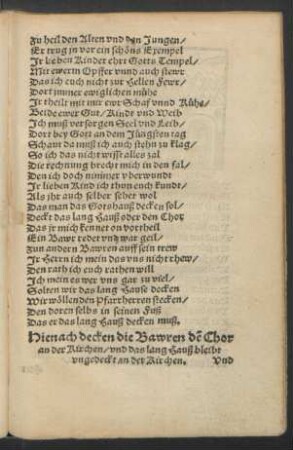 Zu heil den Alten vnd den Jungen/
Er trug in vor ein schöns Exempel
Jr lieben Kinder ehrt Gotts Tempel/
Mit ewerm Opffer vnnd auch stewr
Das ich euch nicht zur Hellen Fewr/
Dort immer ewiglichen mühe
Jr theilt mit mir ewr Schaf vnnd Kühe/
Beide ewer Gut/ Kinde vnd Weib
Jch muß versorgen Seel vnd Leib/
Dort bey Gott an dem Jüngsten tag
Schaw da muß ich auch stehn zu klag/
So ich das nicht wißt alles zal
Die rechnung brecht mich in den fal/
Den ich doch nimmer vberwundt
Jr lieben Kind ich thun euch kundt/
Als jhr auch selber seher wol
Das man das Gotshauß decken sol/
Deckt das lang Hauß oder den Chor
Das jr mich kennet on vortheil
Ein Bawr redet vnd war geil/
Zun andern Bawren auff sein trew
Jr Herrn ich mein das vns nicht rhew/
Den rath ich euch rathen will
Jch mein es wer vns gar zu viel/
Solten wir das lang Hause decken
Wir wöllen den Pfarrherren stecken/
Den doren selbs in seinen Fuß
Das er das lang Hauß decken muß.
Hienach decken die Bawren dē Chor
an der Kirchen/ vnd das lang Hauß bleibt
vngedeckt an der Kirchen.
Vnd